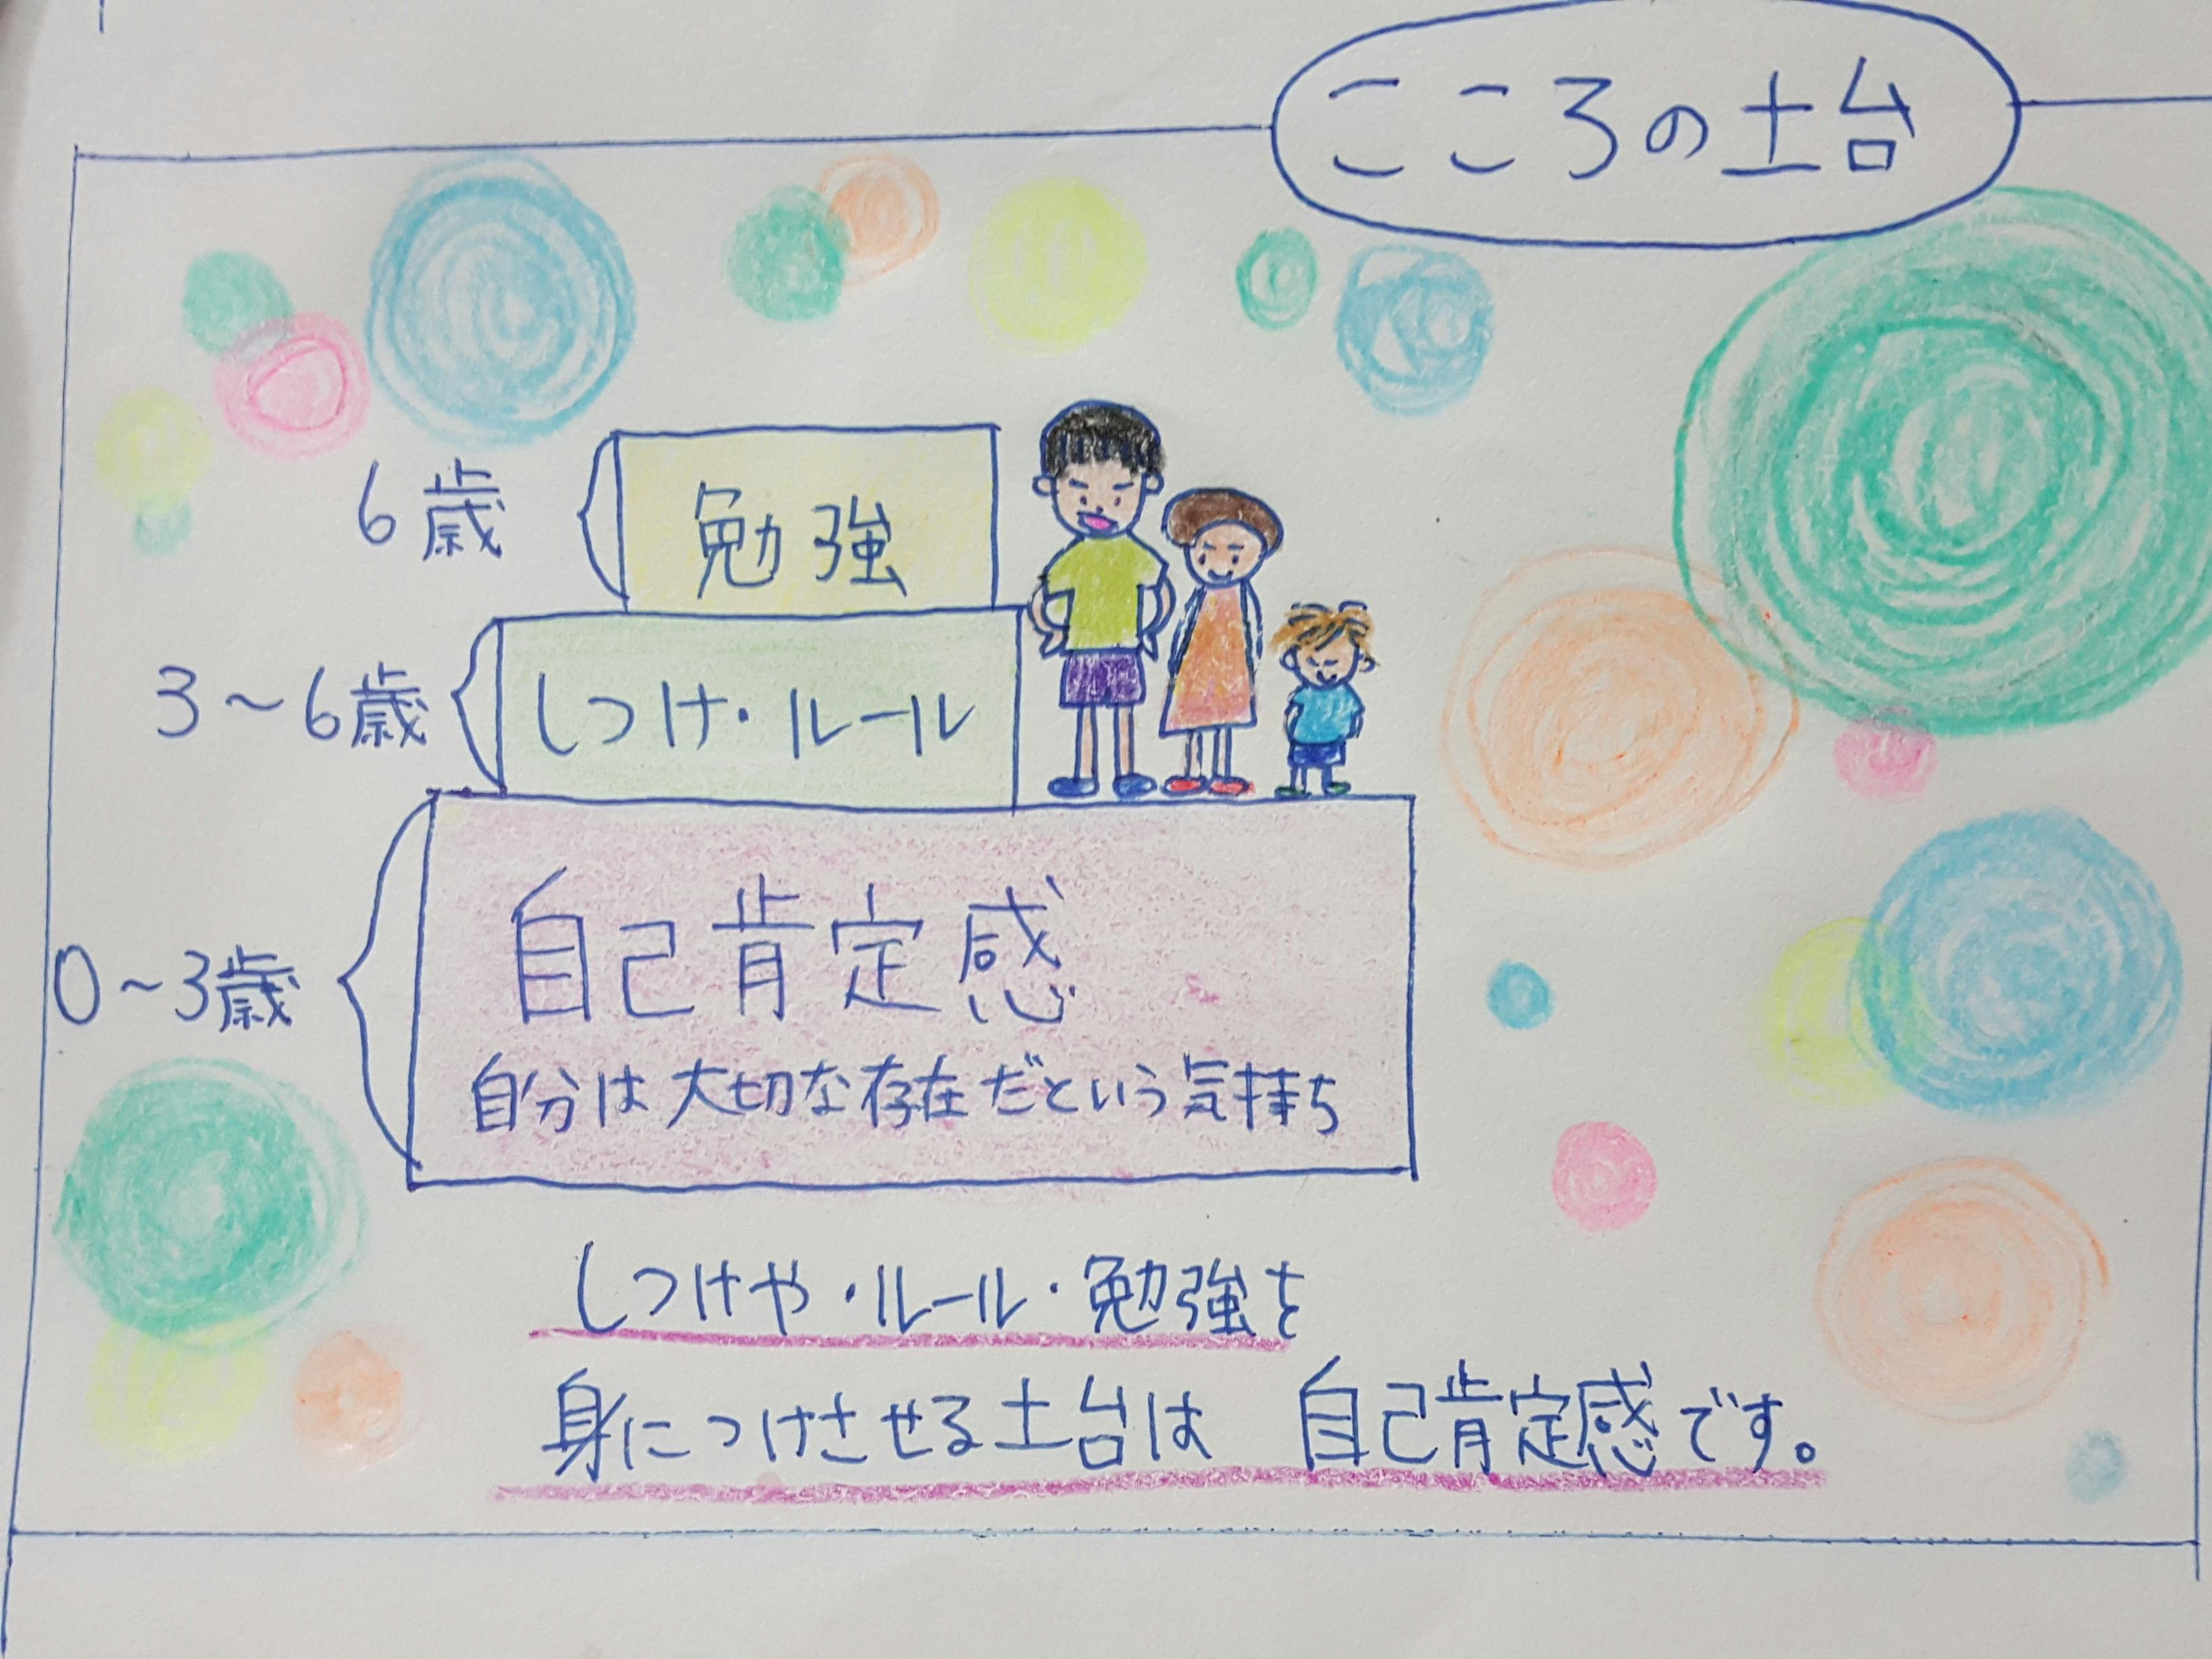 こころの土台
6歳
勉強
3〜6歳
しつけ・ルール
0〜3歳
自己肯定感
自分は大切な存在だという気持ち
しつけや・ルール・勉強を
身につけさせる土台は 自己肯定感です。